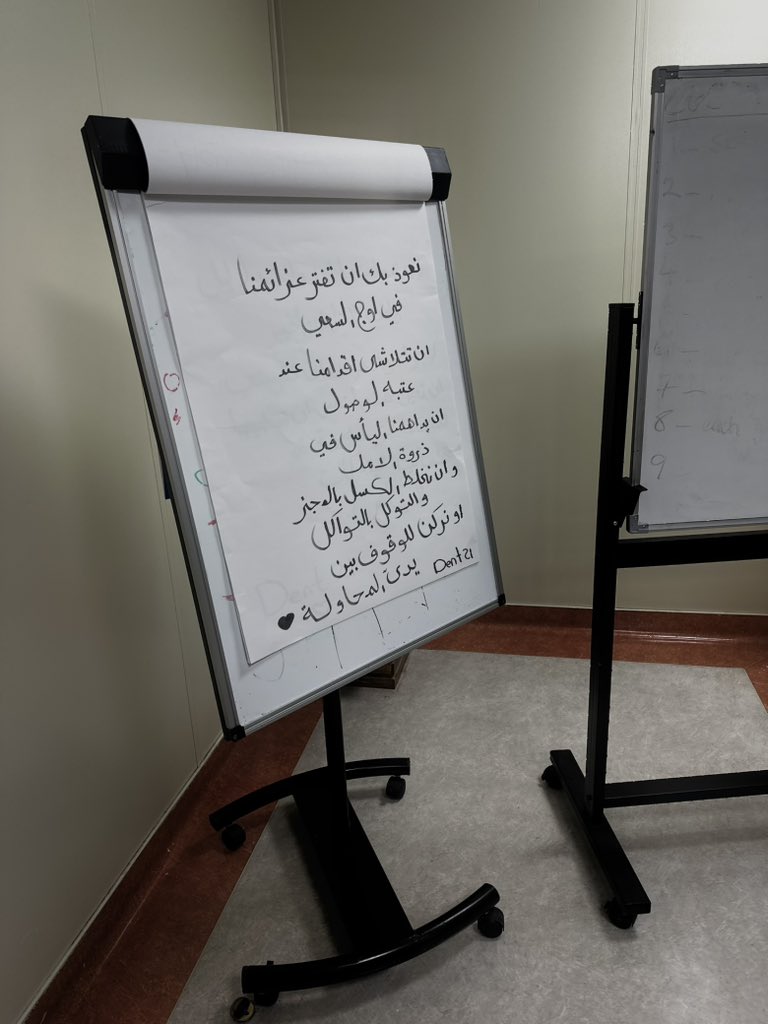 نعوذ بك ان تفتر عزائمنا
في لوج السعي
ان تتلاشى اقدامنا عند
عتبه الوصول
ان يداهمنا اليأس في
ذروة الامل
و ان نخلط الكسل بالعجز
والتوكل بالتواكل
او نركن للوقوف بين
يديّ المحاولة ♥
Dent21
2 -
3 -
8 - each
9